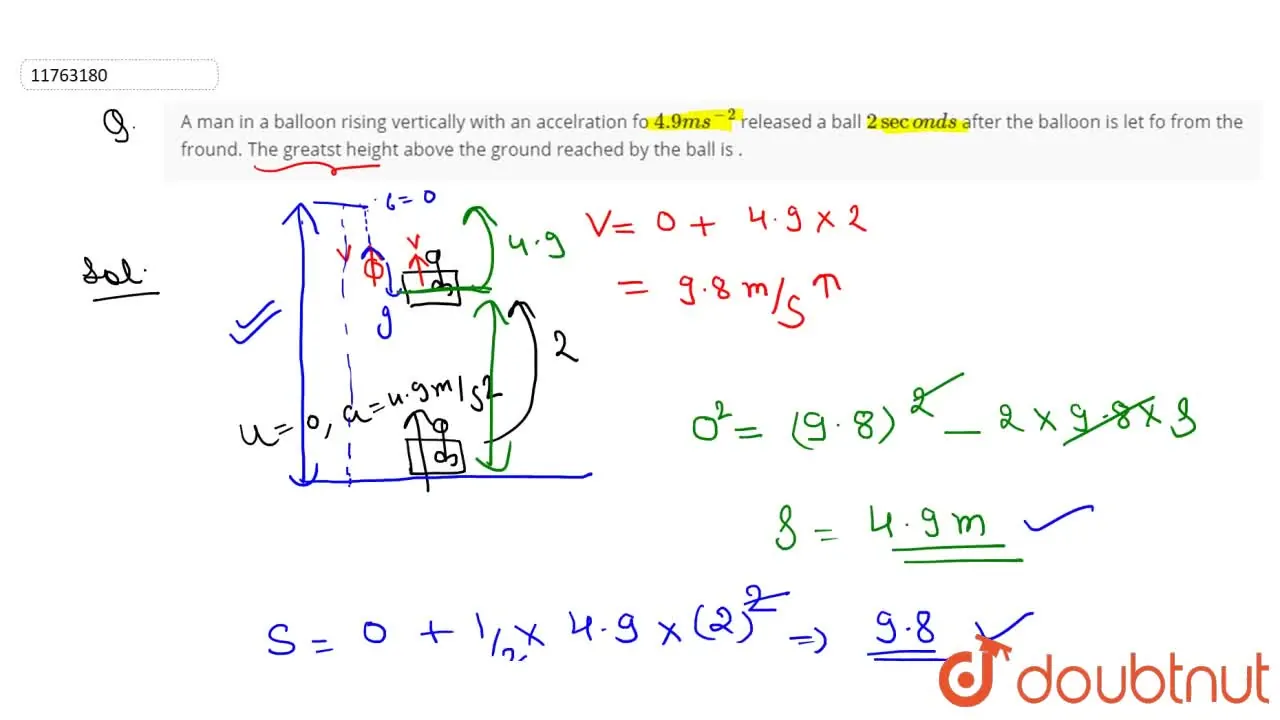 11763180
Q.
A man in a balloon rising vertically with an accelration fo 4.9ms⁻² released a ball 2 seconds after the balloon is let fo from the
fround. The greatst height above the ground reached by the ball is .
Sol.
v=0
V
v
4.9
g
2
u=0, a=4.9m/s2
V= 0 + 4.9×2
= 9.8 m/s ↑
0² = (9.8)² - 2 × 9.8 × S
S = 4.9 m ✓
S = 0 + 1/2 × 4.9 × (2)² ⇒ 9.8 ✓
doubtnut